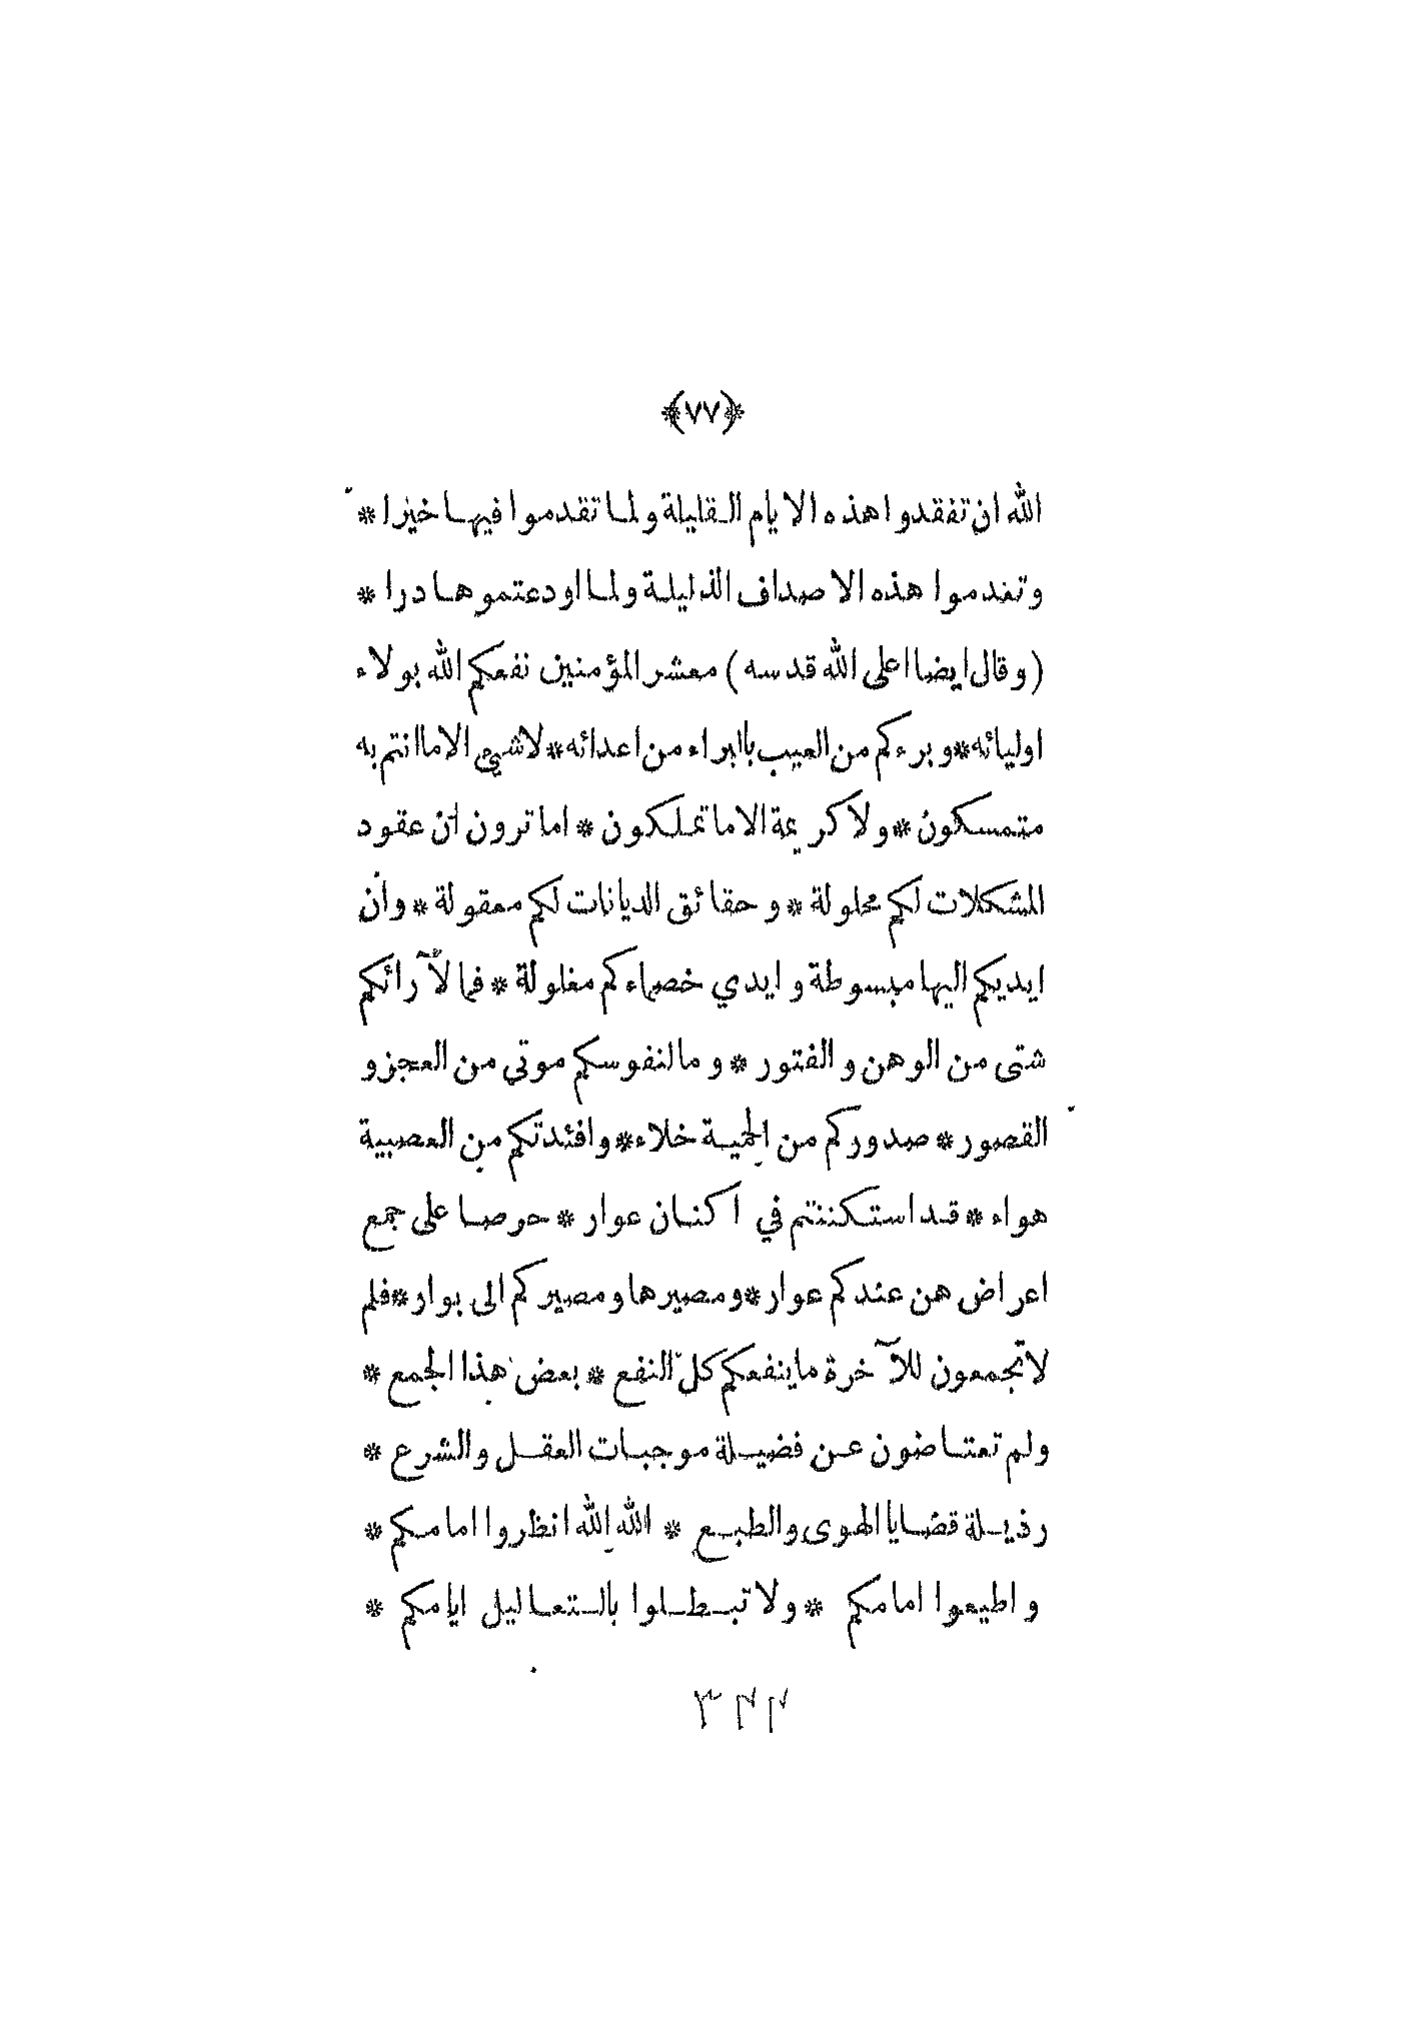 ﴿٧٧﴾
الله ان تفقدوا هذه الايام القليلة ولما تقدموا فيها خيرا *
وتعدموا هذه الاصداف الذليلة ولما اودعتموها درا *
(وقال ايضا اعلى الله قدسه) معشر المؤمنين نفعكم الله بولاء
اوليائه * وبرءكم من العيب بالبراء من اعدائه * لاشيئ الا ما انتم به
متمسكون * ولا كريمة الا ما تملكون * اما ترون ان عقود
المشكلات لكم محلولة * وحقائق الديانات لكم معقولة * وان
ايديكم اليها مبسوطة وايدي خصماءكم مغلولة * فما لآرائكم
شتى من الوهن والفتور * وما لنفوسكم موتي من العجز و
القصور * صدوركم من الحمية خلاء * وافئدتكم من العصبية
هواء * قد استكننتم في اكنان عوار * حرصا على جمع
اعراض هن عندكم عوار * ومصيرها ومصيركم الى بوار * فلم
لا تجمعون للآخرة ما ينفعكم كلّ النفع * بعض هذا الجمع *
ولم تعتاضون عن فضيلة موجبات العقل والشرع *
رذيلة قضايا الهوى والطبع * الله الله انظروا امامكم *
واطيعوا امامكم * ولا تبطلوا بالتعاليل ايامكم *